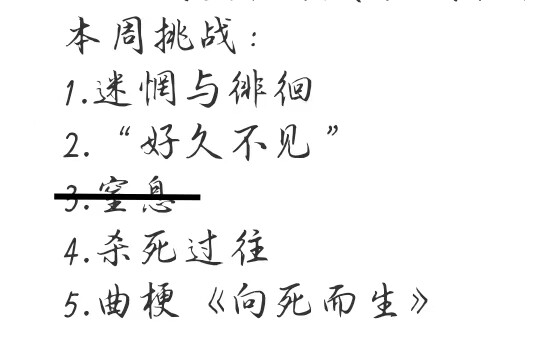 本周挑战：
1.迷惘与徘徊
2.“好久不见”
3.窒息
4.杀死过往
5.曲梗《向死而生》